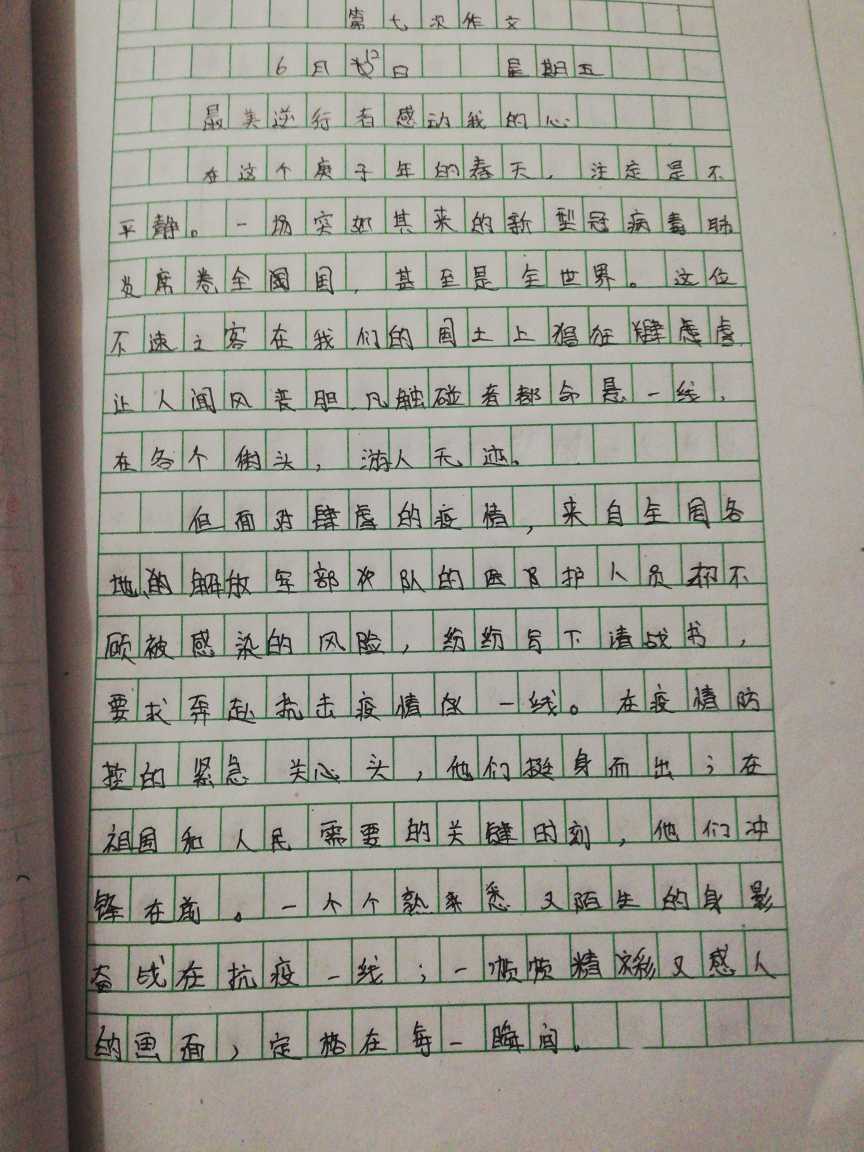 第七次作文
6月12日 星期五
最美逆行者感动我的心
在这个庚子年的春天，注定是不
平静。一场突如其来的新型冠病毒肺
炎席卷全国，甚至是全世界。这位
不速之客在我们的国土上猖狂肆虐，
让人闻风丧胆，凡触碰者都命悬一线，
在各个街头，游人无迹。
但面对肆虐的疫情，来自全国各
地的解放军部队的医护人员都不
顾被感染的风险，纷纷写下请战书，
要求奔赴抗击疫情的一线。在疫情防
控的紧急关心头，他们挺身而出；在
祖国和人民需要的关键时刻，他们冲
锋在前。一个个熟悉又陌生的身影
奋战在抗疫一线；一帧帧精彩又感人
的画面，定格在每一瞬间。